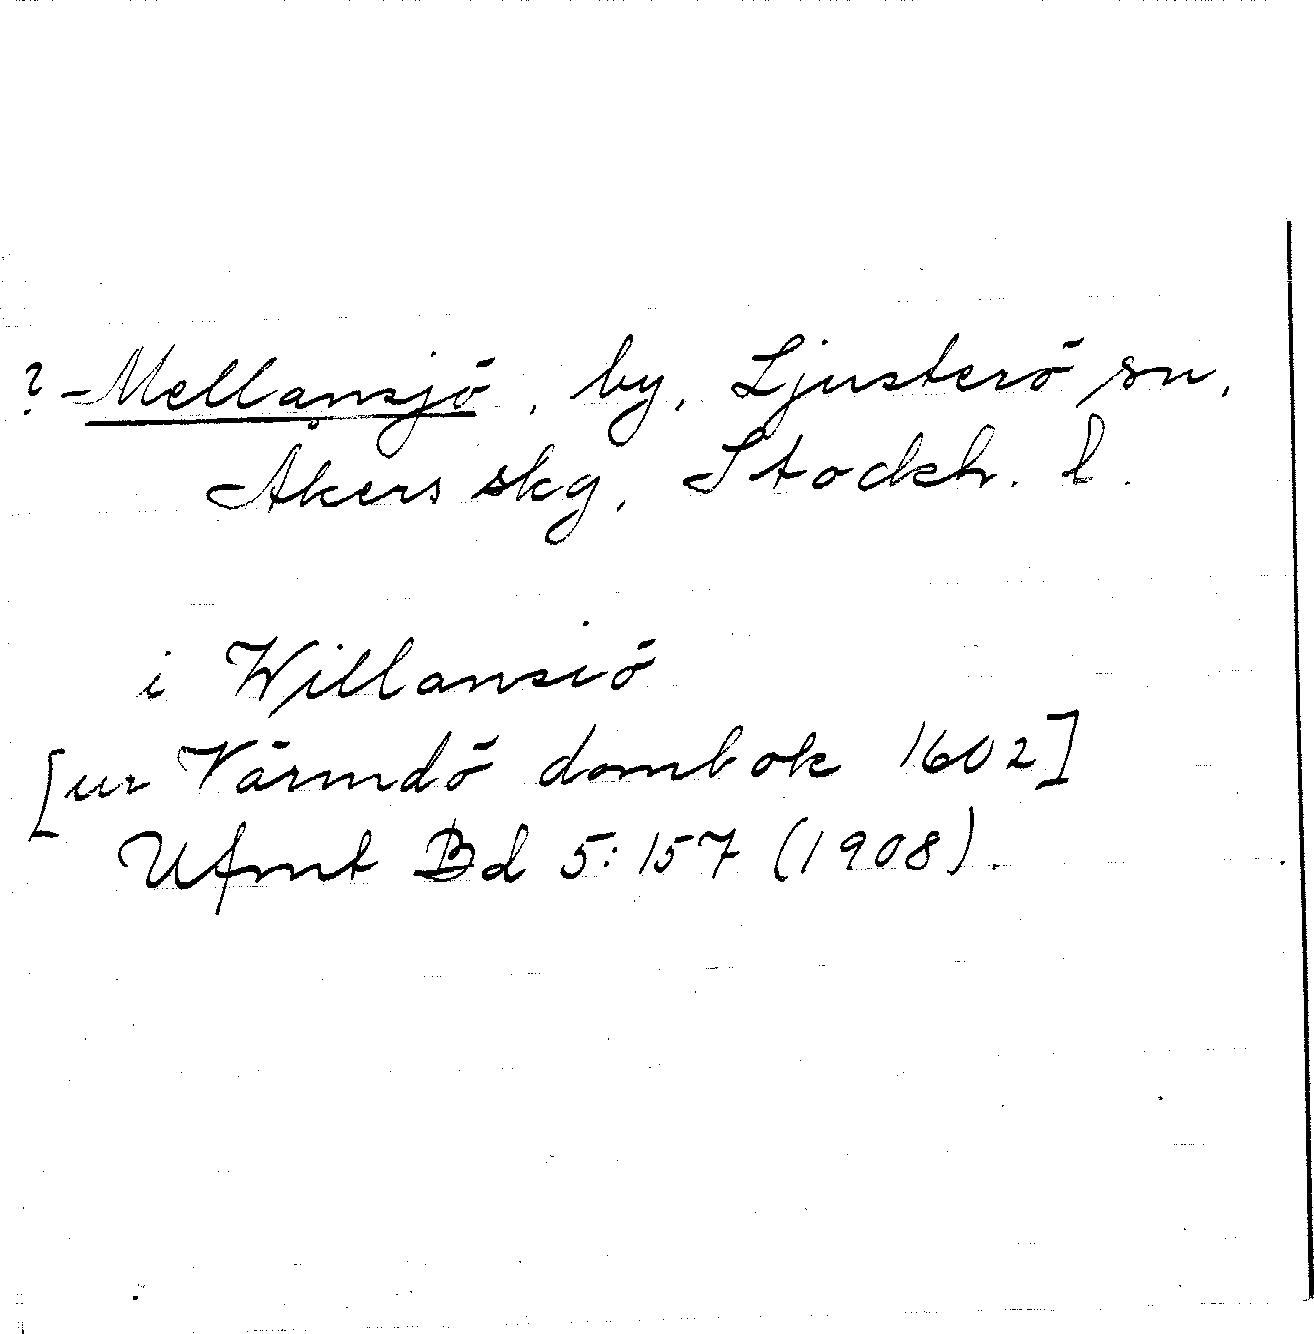 ? - Mellansjö, by, Ljusterö sn,
Åkers skg, Stockh. l.
i Willansiö
[ur Värmdö dombok 1602]
Ufmt Bd 5:157 (1908).